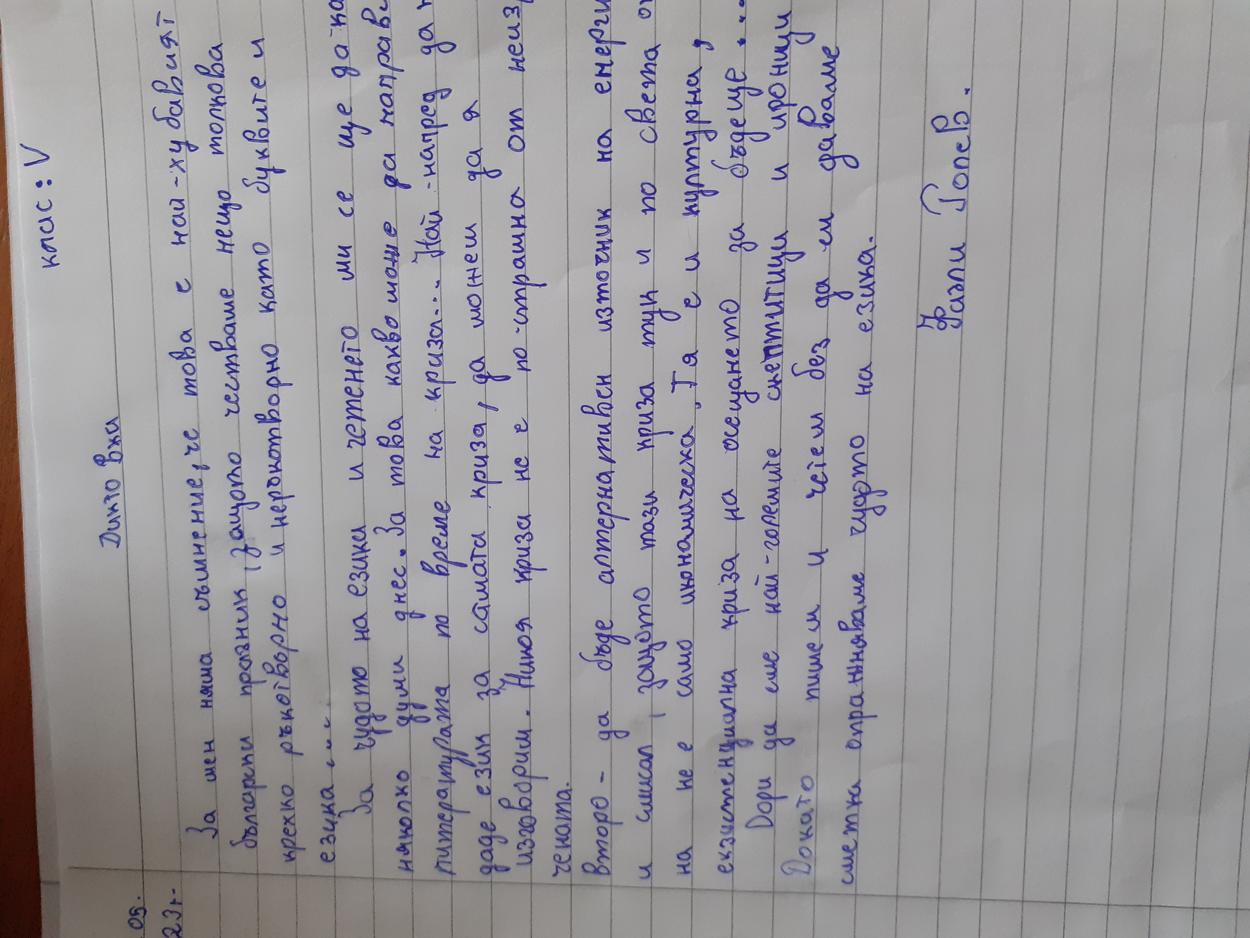 клас: V
Диктовка
05.
23г.
За мен няма съмнение, че това е най-хубавият
български празник, защото честваме нещо толкова
крехко ръкотворно и неръкотворно като буквите и
езика....
За чудото на езика и четенето ми се ще да ка
няколко думи днес. За това какво може да направи
литературата по време на криза... Най-напред да н
даде език за самата криза, да можем да я
изговорим. Никоя криза не е по-страшна от неизр
чената.
Второ - да бъде алтернативен източник на енерги
и смисъл, защото тази криза тук и по света о
на не е само икономическа. Тя е и културна,
екзистенциална криза на осещането за бъдеще...
Дори да сме най-големите скептитици и ироници
Докато пишем и четем без да си даваме
сметка опражняваме чудото на езика.